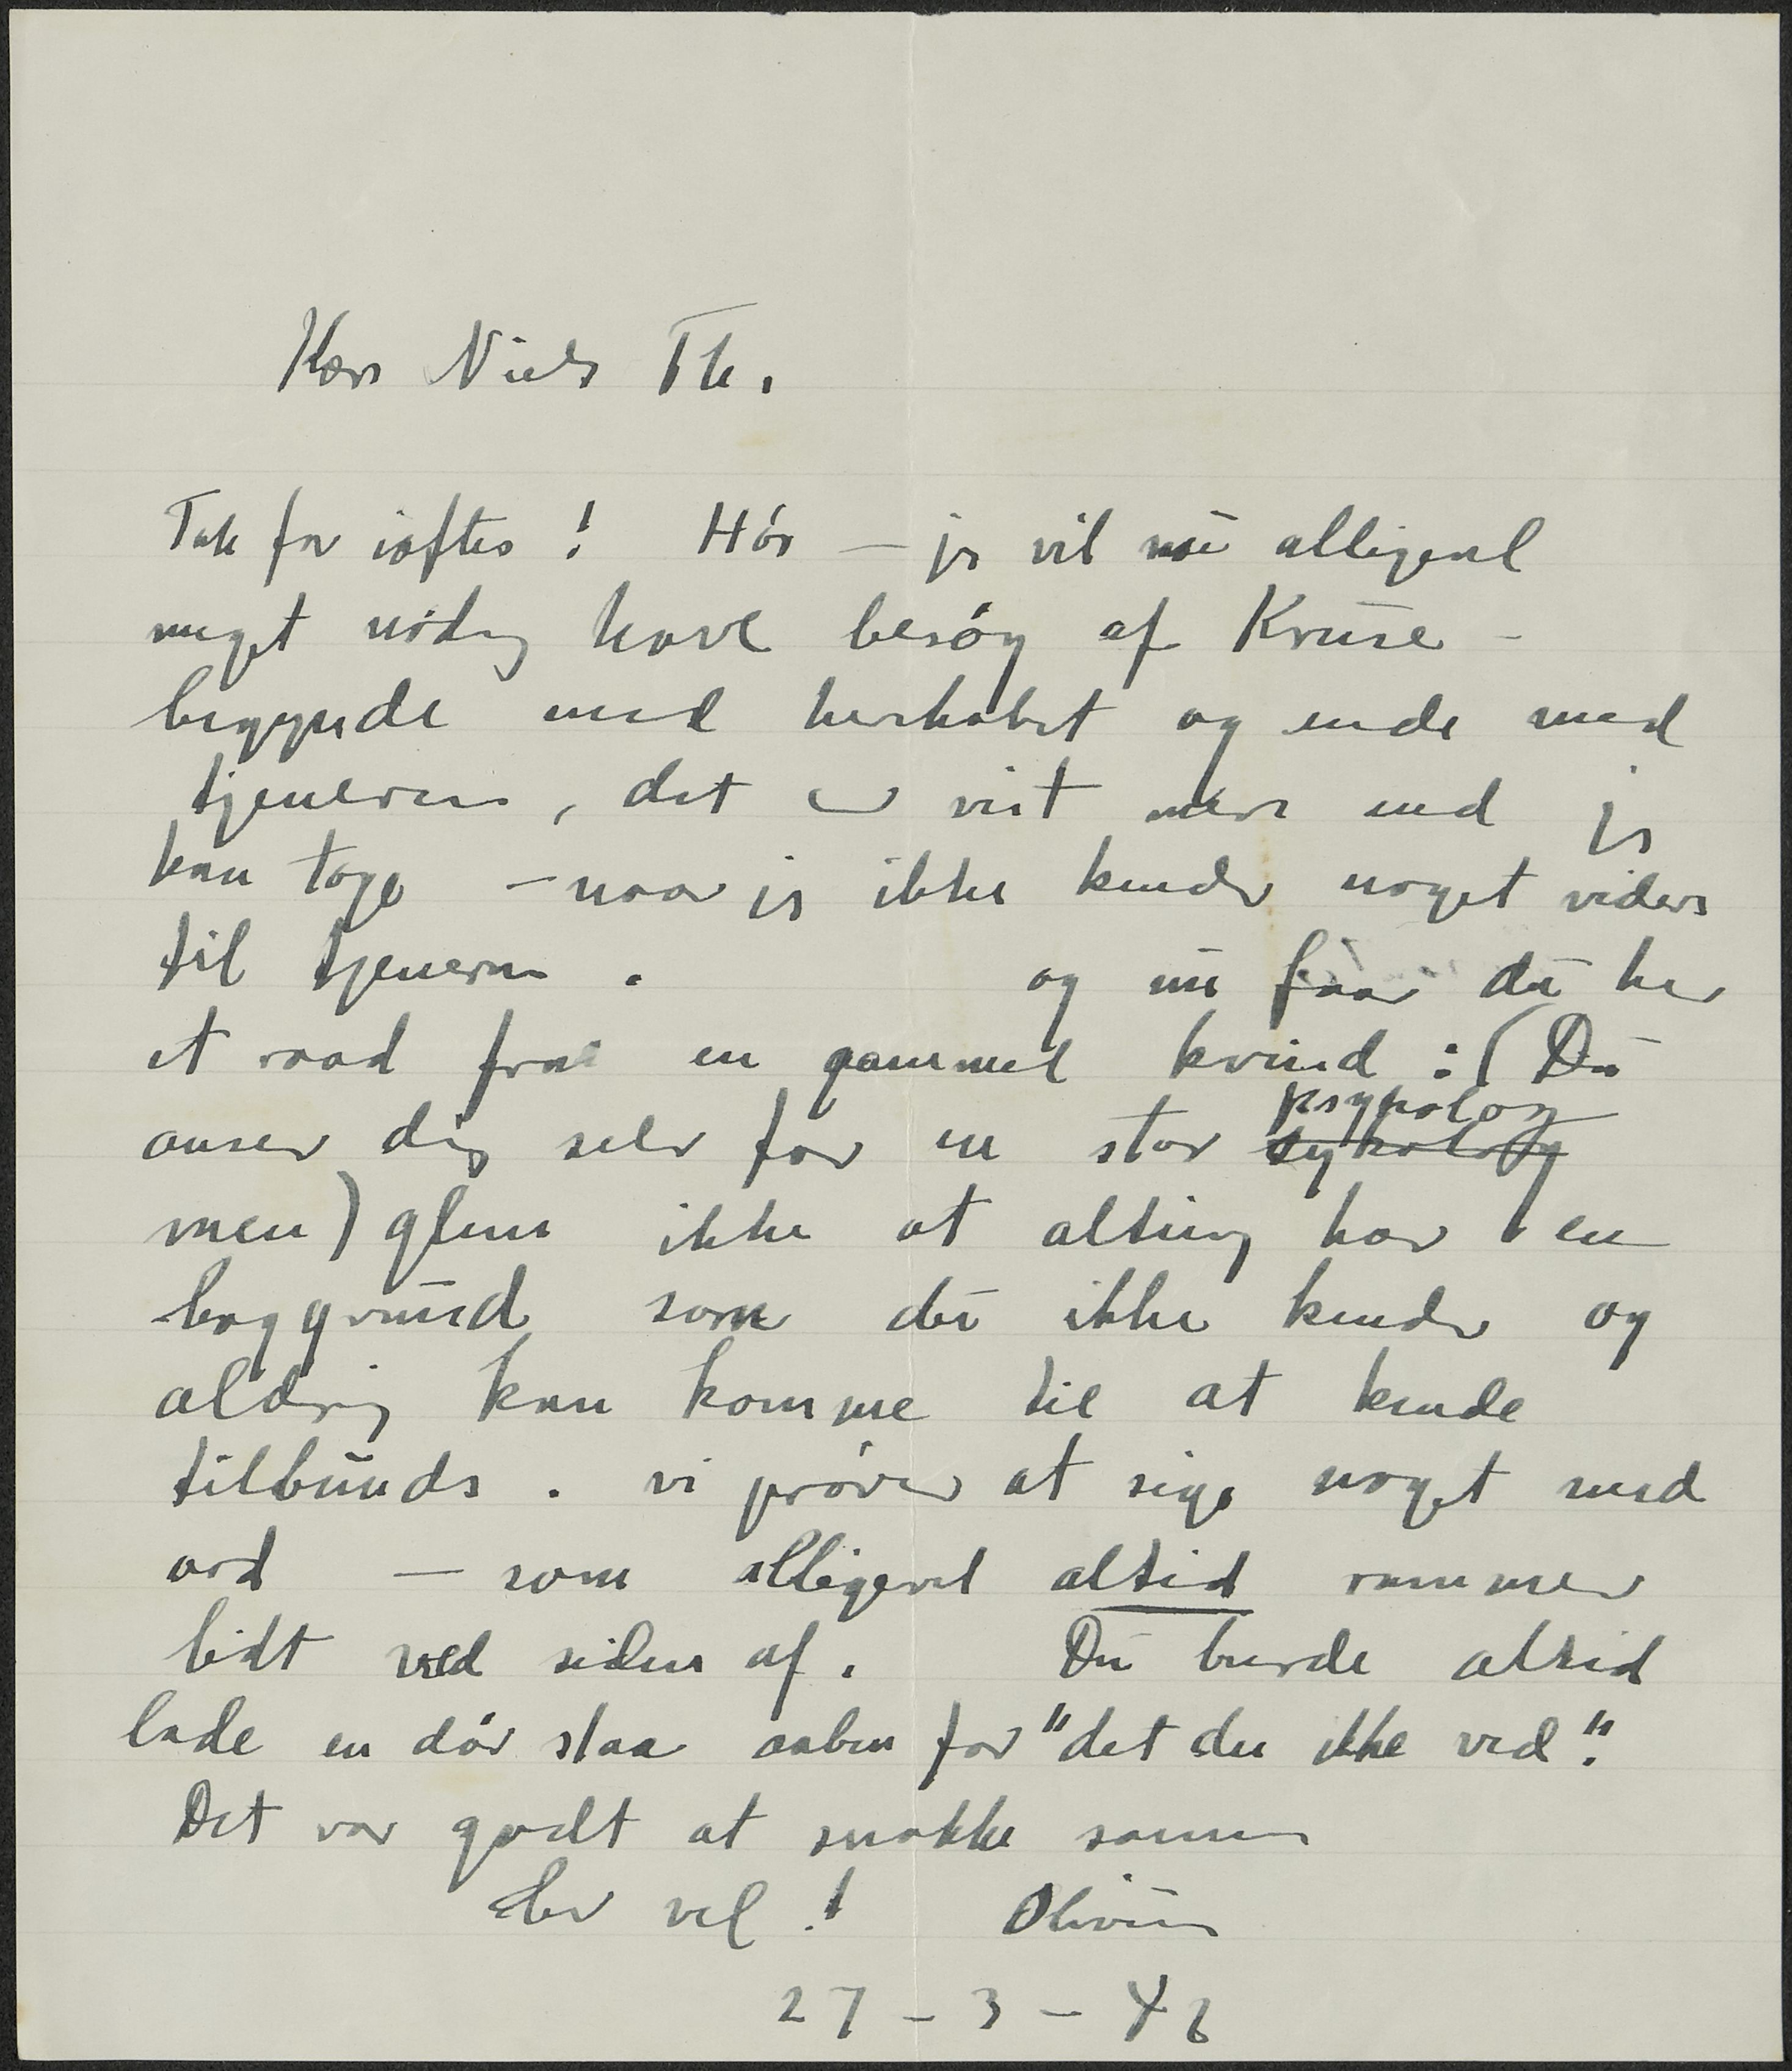 Kære Niels Th.
Tak for iaftes! Hør — jeg vil nu alligevel
meget nødig have besøg af Kruse –
begynde med herskabet og ende med
tjeneren, det er vist mere end jeg
kan tage – naar jeg ikke kender noget videre
til tjeneren. og nu faar du her
et raad fra en gammel kvind : (Du
anser dig selv for en stor sykolog psykolog
men) glem ikke at alting har en
baggrund som du ikke kender og
aldrig kan komme til at kende
tilbunds. vi prøver at sige noget med
ord — som alligevel altid rammer
lidt ved siden af. Du burde altid
lade en dør staa aaben for "det du ikke ved".
Det var godt at snakke sammen
Lev vel! Olivia
27 – 3 – 46